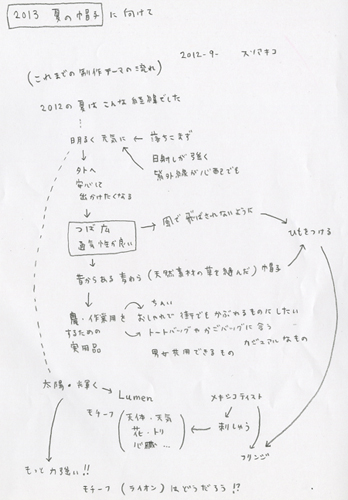 2013 夏の帽子 に向けて
2012-9- スソアキコ
(これまでの制作テーマの流れ)
2012の夏はこんな様でした
明るく 元気に ← 落ちこまず
日射しが強く
紫外線が心配でも
外へ
安心して
出かけたくなる
つば広
通気性が良い
風で飛ばされないように
ひもをつける
昔からある 麦わら (天然素材の草を編んだ) 帽子
農・作業用を
するための
実用品
ちょい
おしゃれで 街でも かぶれるものにしたい
トートバッグやかごバッグに合う
カジュアルなもの
男女共用できるもの
太陽・輝く
Lumen
モチーフ
天体・天気
花・トリ
心臓…
メキシコテイスト
刺しゅう
フリンジ
もって力強い!!
モチーフ (ライオン) はどうだろう!?